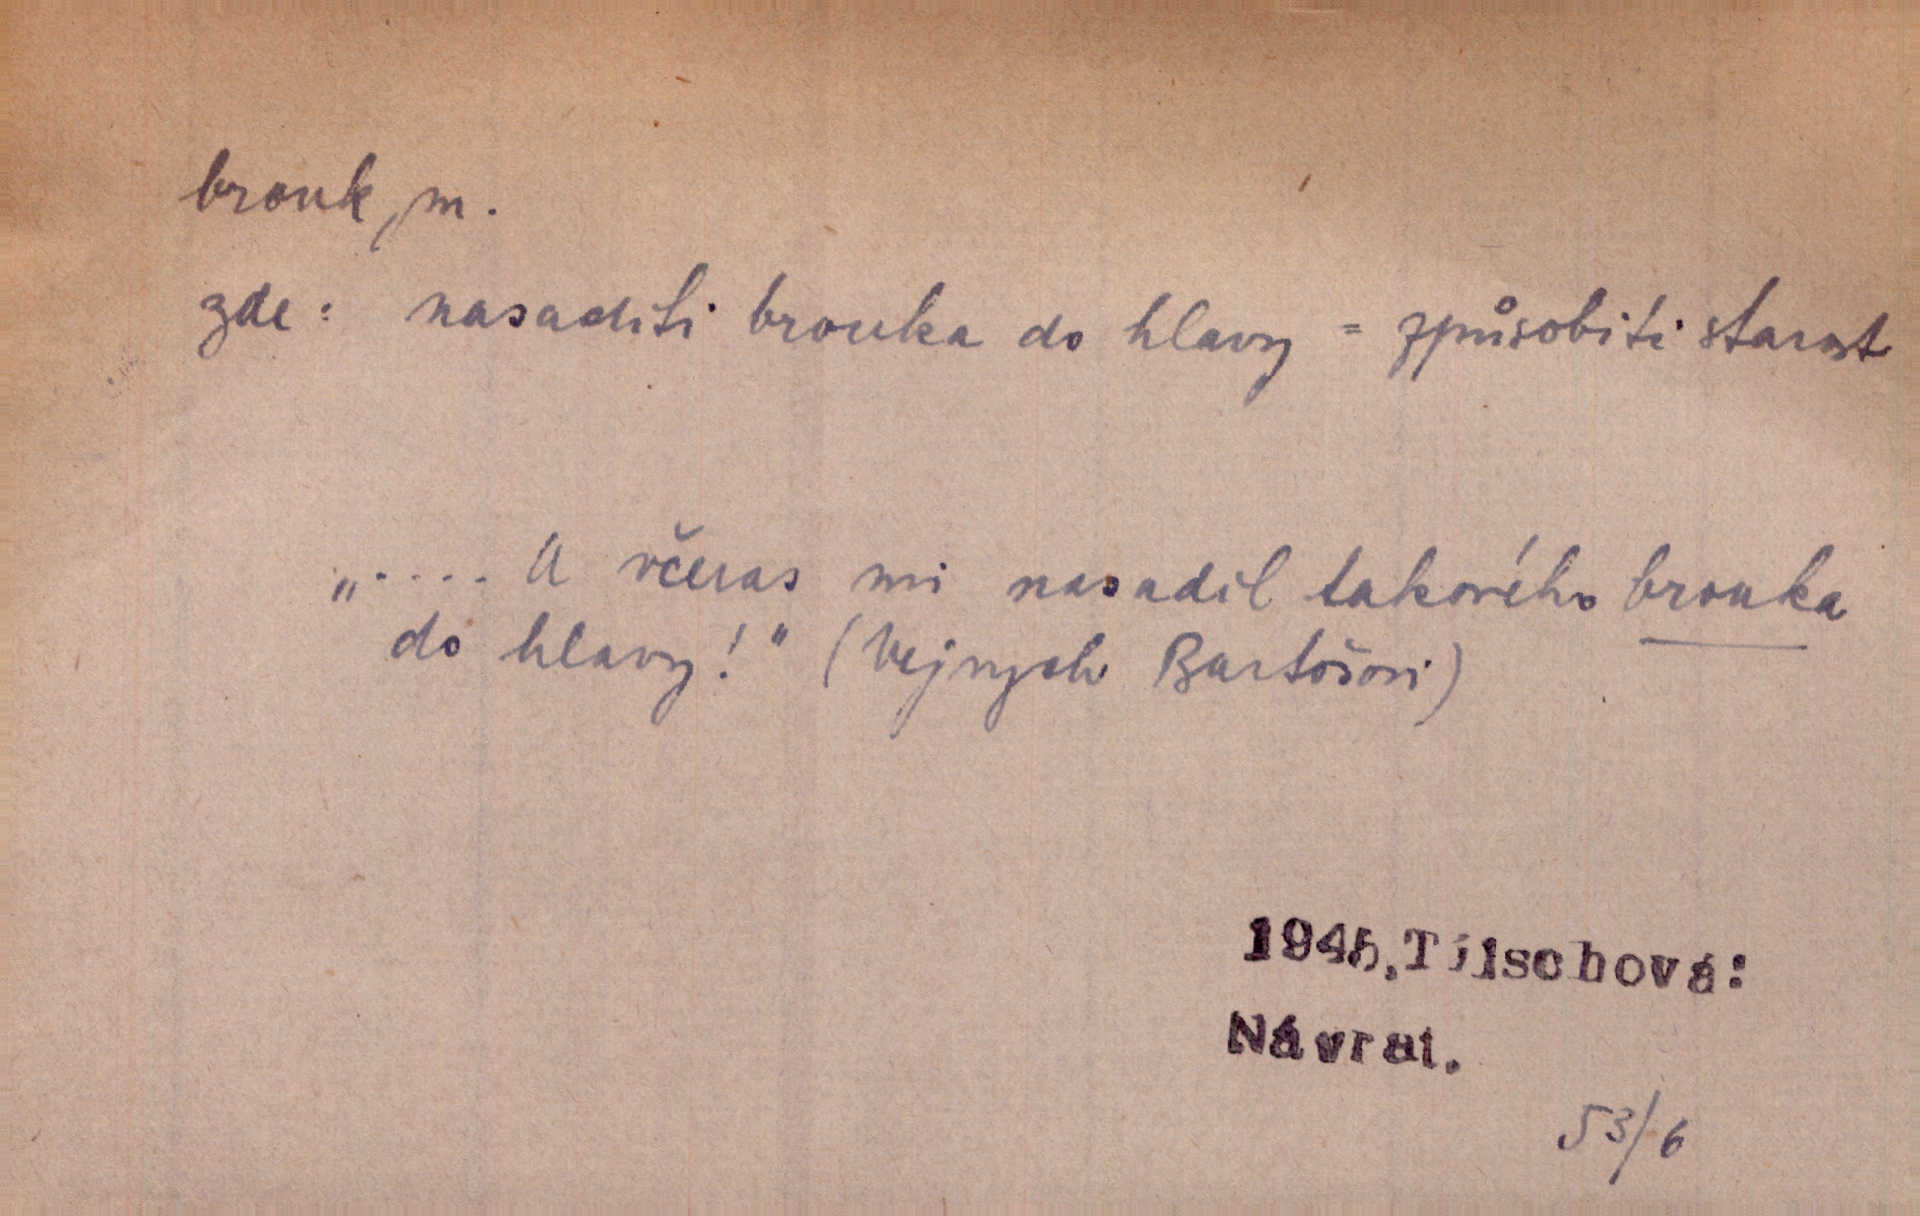 brouk, m.
zde: nasaditi brouka do hlavy = způsobiti starost
„.... A včeras mi nasadil takového brouka
do hlavy!" (Vejrych Bartošovi)
1945, Tilschová:
Návrat.
53/6